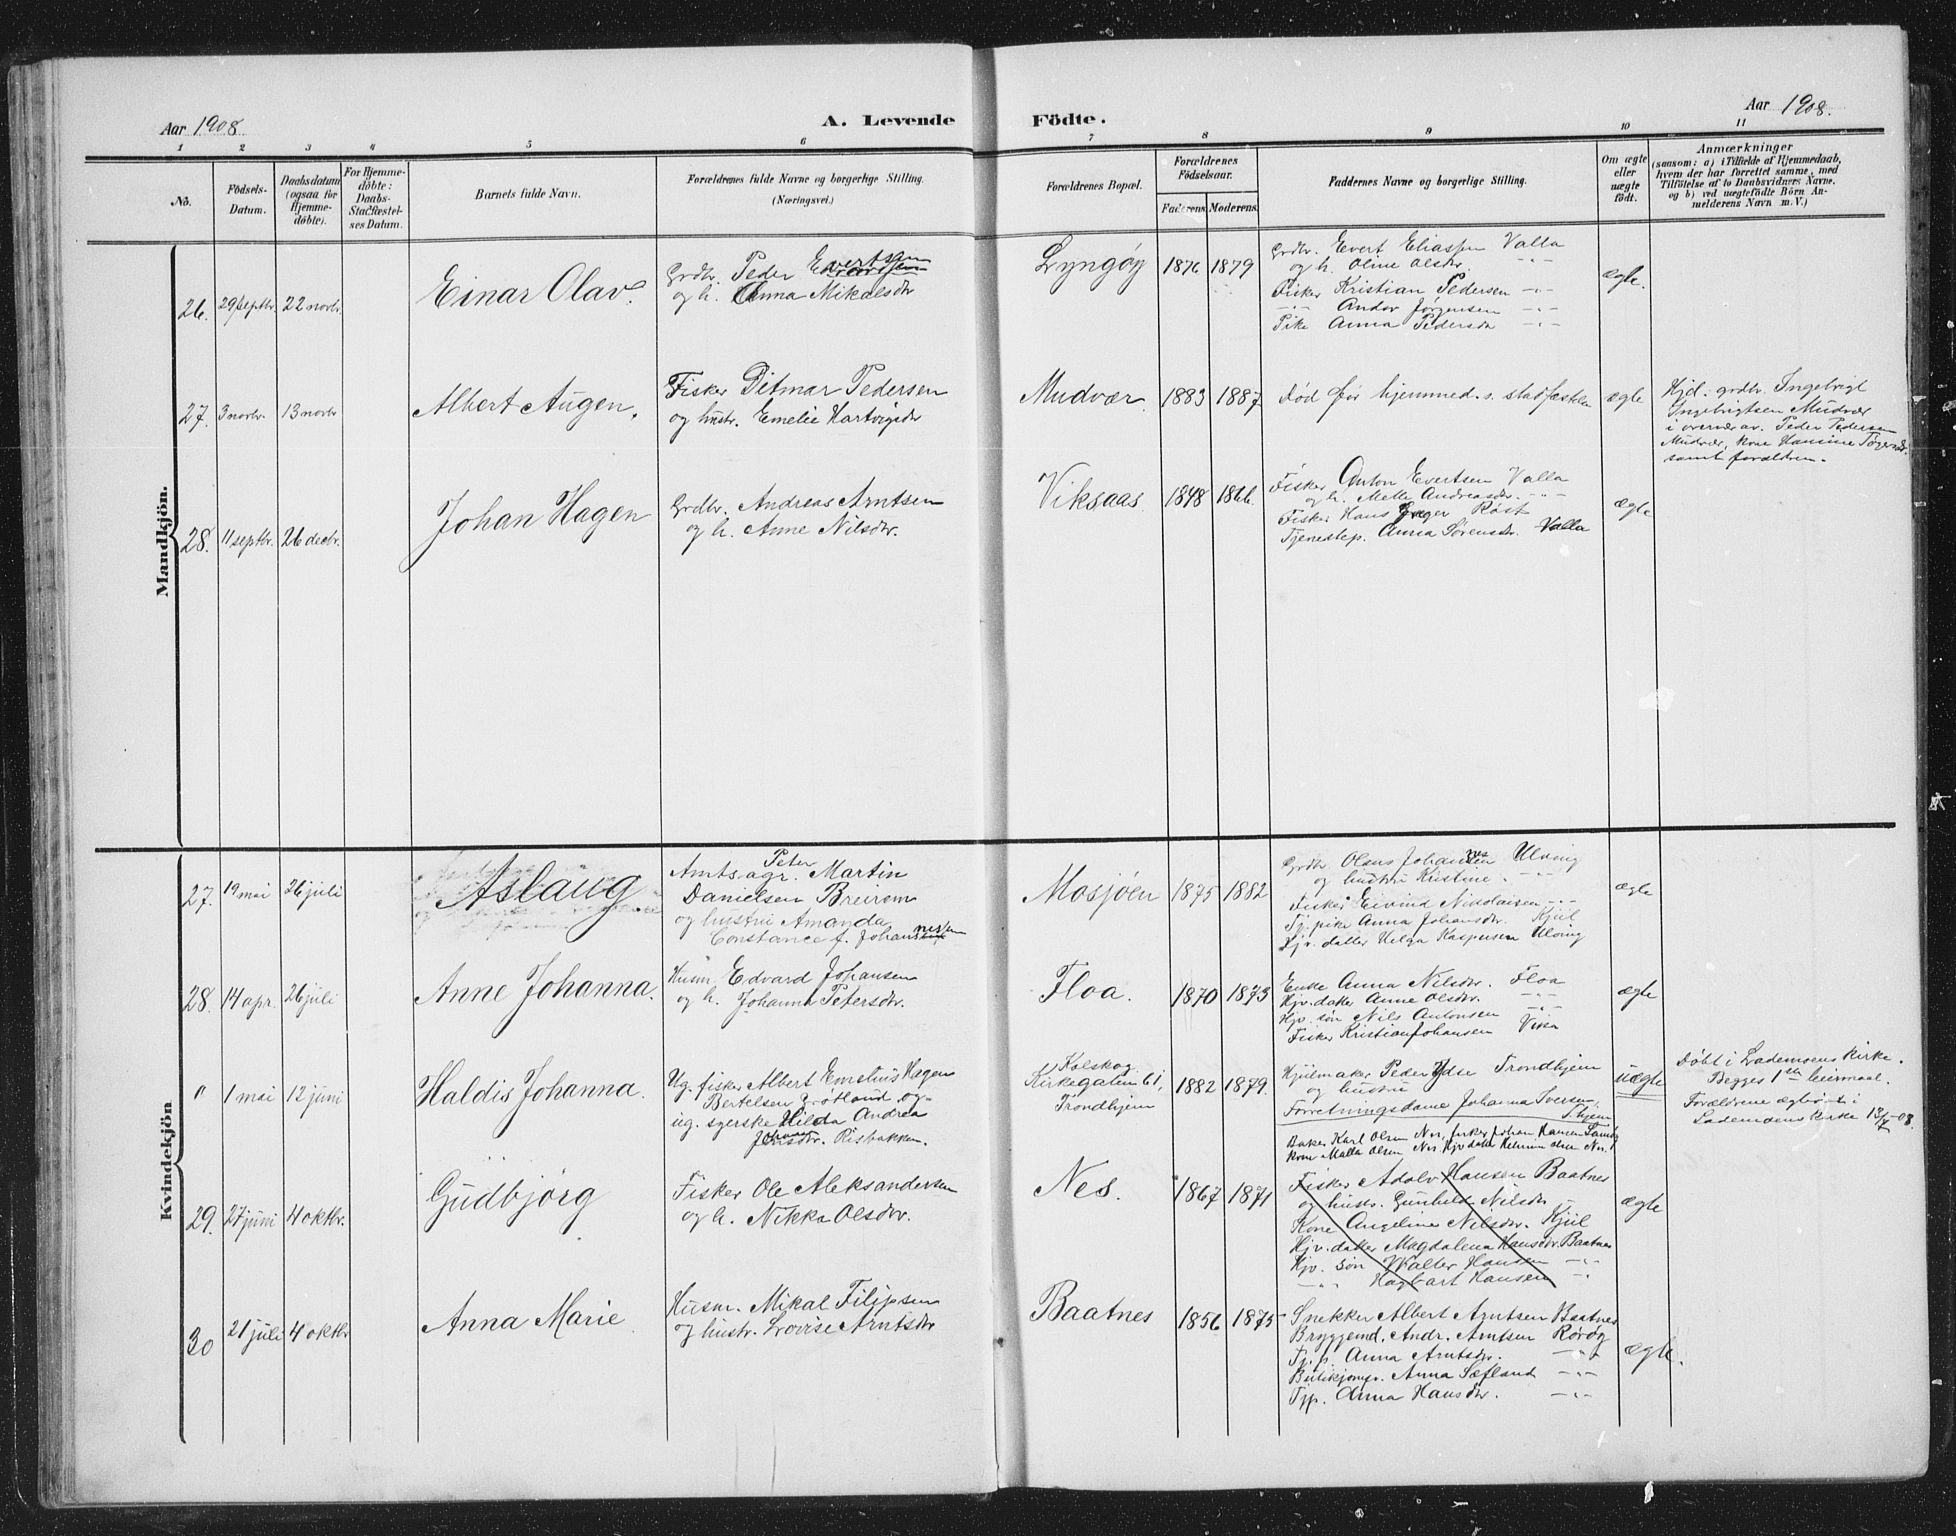 Aar 1908
A. Levende Födte.
Aar 1908.
1 2 3 4 5 6 7 8 9 10 11
No.
Födsels-
Datum.
Daabsdatum
(ogsaa for
Hjemme-
döbte).
For Hjemme-
döbte:
Daabs-
Stadfæstel-
ses Datum.
Barnets fulde Navn.
Forældrenes fulde Navne og borgerlige Stilling.
(Næringsvei.)
Forældrenes Bopæl.
Forældrenes
Födselsaar.
Faderens. Moderens.
Faddernes Navne og borgerlige Stilling.
Om ægte
eller
uægte
födt.
Anmærkninger
(saasom: a) i Tilfælde af Hjemmedaab,
hvem der har forrettet samme, med
Tilföielse af to Daabsvidners Navne,
og b) ved uægtefödte Börn An-
melderens Navn m. V.)
Mandkjön.
26. 29 septbr. 22 novbr. Einar Olav.
Grdbr. Peder Evertsen
og h. Anna Mikalsdtr
Lyngöy 1876 1879
Grdbr. Evert Eliassen Valla
og h. Oline Olsdtr. -"-
Fisker Kristian Pedersen -"-
-"- Andor Jørgensen -"-
Pike Anna Pedersdtr -"-
ægte.
27. 3 novbr. 13 novbr Albert Augen.
Fisker Ditmar Pedersen
og hustr. Emelie Hartvigsdtr
Mudvær 1883 1887
død før hjemmed.s. stadfæstelse
ægte
Hjd. grdbr. Ingebrigt
Ingebrigtsen Mudvær
i overvær av. Peder Pedersen
Mudvær, kone Hansine
samt forældren.
28. 11 septbr. 26 decbr. Johan Hagen
Grdbr. Andreas Arntsen
og h. Anne Nilsdtr.
Viksaas 1848 1866
Fisker Anton Evertsen Valla
og h. Mette Andreasdtr. -"-
Fisker Hans Røst
Tjenestep. Anna Sørensdtr. Valla
ægte
Kvindekjön
27. 19 mai 26 juli Aslaug
Amtsagr. Peter Martin
Danielsen Breirem
og hustru Amanda
Constance f. Johannessen
Mosjöen 1875 1882
Grdbr Olaus Johannesen Ulving
og hustru Kristine. -"-
Fisker Eivind Nikolaisen -"-
Tj. pike Anna Johansdtr. Kjul
Hjv. datter Helga Kaspersen Ulving
ægte
28. 14 apr. 26 juli Anne Johanna.
Husm. Edvard Johansen
og h. Johanna Petersdtr.
Floa. 1870 1873
Enke Anna Nilsdtr. Floa
Hjv. datter Anne Olsdtr. -"-
Hjv. søn Nils Antonsen -"-
Fisker Kristian Johansen
ægte
" 1 mai 12 juni Haldis Johanna.
Ug. fisker Albert Emelius Hagen
Bertelsen Grøtlund og
ug. syerske Hilda Andrea
Risbakken.
Kolskog
Kirkegaten 61,
Trondhjem
1882 1879.
Hjulmaker Peder Ydse Trondhjem
og hustru
Forretningsdame Johanna Iversen,
T.hjem
Baker Karl Olsen Nes, fisker Johan Hansen
Kone Malla Olsen Nes. Hjv datter Olsen Nes.
uægte
Døbt i Lademoens kirke.
Begges 1ste leiermaal.
Forældrene ægtev. i
Lademoens kirke 13/7-08
29. 27 juni 4 oktbr. Gudbjörg
Fisker Ole Aleksandersen
og h. Nikka Olsdtr.
Nes. 1867 1871
Fisker Adolv Hansen Baatnes
og hustr. Gunhild Nilsdtr
Kone Angeline Nilsdtr. Kjul
Hjv. datter Magdalena Hansdtr. Baatnes
Hjv. søn Walter Hansen -"-
-"- Hagbart Hansen -"-
ægte
30 21 juli 4 oktbr Anna Marie
Husm. Mikal Filipsen
og hustr. Lovise Arntsdtr
Baatnes 1856 1875
Snekker Albert Arntsen Baatnes
Bryggemd. Andr. Arntsen Rörög
Tj. p. Anna Arntsdtr. -"-
Butikjomfr. Anna Sæfland -"-
Tjp. Anna Hansdtr. -"-
ægte.